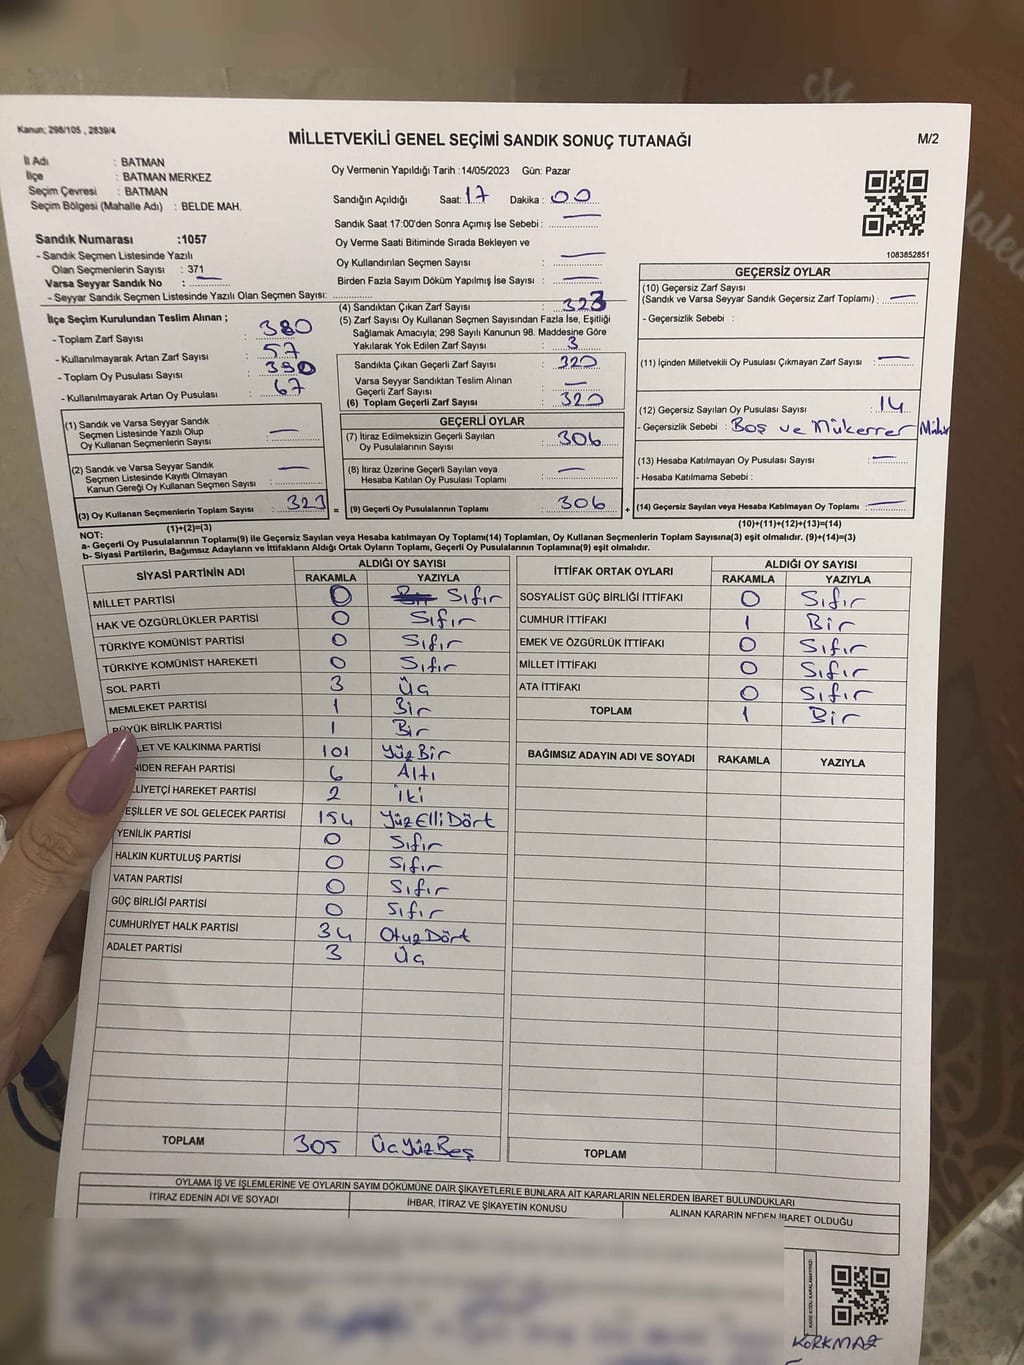 Kanun; 298/105 , 2839/4
MİLLETVEKİLİ GENEL SEÇİMİ SANDIK SONUÇ TUTANAĞI
M/2
İl Adı : BATMAN
İlçe : BATMAN MERKEZ
Seçim Çevresi : BATMAN
Seçim Bölgesi (Mahalle Adı) : BELDE MAH.
Oy Vermenin Yapıldığı Tarih :14/05/2023 Gün: Pazar
Sandığın Açıldığı Saat: 17 Dakika : 00
Sandık Saat 17:00'den Sonra Açımış İse Sebebi : —
Oy Verme Saati Bitiminde Sırada Bekleyen ve
Oy Kullandırılan Seçmen Sayısı : —
Birden Fazla Sayım Döküm Yapılmış İse Sayısı : —
Sandık Numarası :1057
- Sandık Seçmen Listesinde Yazılı
Olan Seçmenlerin Sayısı : 371
Varsa Seyyar Sandık No : —
- Seyyar Sandık Seçmen Listesinde Yazılı Olan Seçmen Sayısı:
İlçe Seçim Kurulundan Teslim Alınan ;
- Toplam Zarf Sayısı : 380
- Kullanılmayarak Artan Zarf Sayısı : 57
- Toplam Oy Pusulası Sayısı :
- Kullanılmayarak Artan Oy Pusulası : 67
(1) Sandık ve Varsa Seyyar Sandık
Seçmen Listesinde Yazılı Olup
Oy Kullanan Seçmenlerin Sayısı : —
(2) Sandık ve Varsa Seyyar Sandık
Seçmen Listesinde Kayıtlı Olmayan
Kanun Gereği Oy Kullanan Seçmen Sayısı : —
(3) Oy Kullanan Seçmenlerin Toplam Sayısı : 323
(1)+(2)=(3)
(4) Sandıktan Çıkan Zarf Sayısı : 323
(5) Zarf Sayısı Oy Kullanan Seçmen Sayısından Fazla İse, Eşitliği
Sağlamak Amacıyla; 298 Sayılı Kanunun 98. Maddesine Göre
Yakılarak Yok Edilen Zarf Sayısı : 3
Sandıkta Çıkan Geçerli Zarf Sayısı : 320
Varsa Seyyar Sandıktan Teslim Alınan
Geçerli Zarf Sayısı : —
(6) Toplam Geçerli Zarf Sayısı : 320
GEÇERLİ OYLAR
(7) İtiraz Edilmeksizin Geçerli Sayılan
Oy Pusulalarının Sayısı : 306
(8) İtiraz Üzerine Geçerli Sayılan veya
Hesaba Katılan Oy Pusulası Toplamı : —
= (9) Geçerli Oy Pusulalarının Toplamı : 306 +
1083852851
GEÇERSİZ OYLAR
(10) Geçersiz Zarf Sayısı
(Sandık ve Varsa Seyyar Sandık Geçersiz Zarf Toplamı) : —
- Geçersizlik Sebebi :
(11) İçinden Milletvekili Oy Pusulası Çıkmayan Zarf Sayısı : —
(12) Geçersiz Sayılan Oy Pusulası Sayısı : 14
- Geçersizlik Sebebi : Boş ve Mükerrer Mühür
(13) Hesaba Katılmayan Oy Pusulası Sayısı : —
- Hesaba Katılmama Sebebi :
(14) Geçersiz Sayılan veya Hesaba Katılmayan Oy Toplamı : —
(10)+(11)+(12)+(13)=(14)
NOT:
a- Geçerli Oy Pusulalarının Toplamı(9) ile Geçersiz Sayılan veya Hesaba katılmayan Oy Toplamı(14) Toplamları, Oy Kullanan Seçmenlerin Toplam Sayısına(3) eşit olmalıdır. (9)+(14)=(3)
b- Siyasi Partilerin, Bağımsız Adayların ve İttifakların Aldığı Ortak Oyların Toplamı, Geçerli Oy Pusulalarının Toplamına(9) eşit olmalıdır.
SİYASİ PARTİNİN ADI ALDIĞI OY SAYISI
RAKAMLA YAZIYLA
MİLLET PARTİSİ 0 Sıfır
HAK VE ÖZGÜRLÜKLER PARTİSİ 0 Sıfır
TÜRKİYE KOMÜNİST PARTİSİ 0 Sıfır
TÜRKİYE KOMÜNİST HAREKETİ 0 Sıfır
SOL PARTİ 3 Üç
MEMLEKET PARTİSİ 1 Bir
BÜYÜK BİRLİK PARTİSİ 1 Bir
LET VE KALKINMA PARTİSİ 101 YüzBir
NİDEN REFAH PARTİSİ 6 Altı
LLİYETÇİ HAREKET PARTİSİ 2 İki
EŞİLLER VE SOL GELECEK PARTİSİ 154 YüzElliDört
YENİLİK PARTİSİ 0 Sıfır
HALKIN KURTULUŞ PARTİSİ 0 Sıfır
VATAN PARTİSİ 0 Sıfır
GÜÇ BİRLİĞİ PARTİSİ 0 Sıfır
CUMHURİYET HALK PARTİSİ 34 OtuzDört
ADALET PARTİSİ 3 Üç
TOPLAM 305 ÜçYüzBeş
İTTİFAK ORTAK OYLARI ALDIĞI OY SAYISI
RAKAMLA YAZIYLA
SOSYALİST GÜÇ BİRLİĞİ İTTİFAKI 0 Sıfır
CUMHUR İTTİFAKI 1 Bir
EMEK VE ÖZGÜRLÜK İTTİFAKI 0 Sıfır
MİLLET İTTİFAKI 0 Sıfır
ATA İTTİFAKI 0 Sıfır
TOPLAM 1 Bir
BAĞIMSIZ ADAYIN ADI VE SOYADI RAKAMLA YAZIYLA
TOPLAM
OYLAMA İŞ VE İŞLEMLERİNE VE OYLARIN SAYIM DÖKÜMÜNE DAİR ŞİKAYETLERLE BUNLARA AİT KARARLARIN NELERDEN İBARET BULUNDUKLARI
İTİRAZ EDENİN ADI VE SOYADI İHBAR, İTİRAZ VE ŞİKAYETİN KONUSU ALINAN KARARIN NEDEN İBARET OLDUĞU
KARE KODU KARALAMAYINIZ!
KORKMAZ